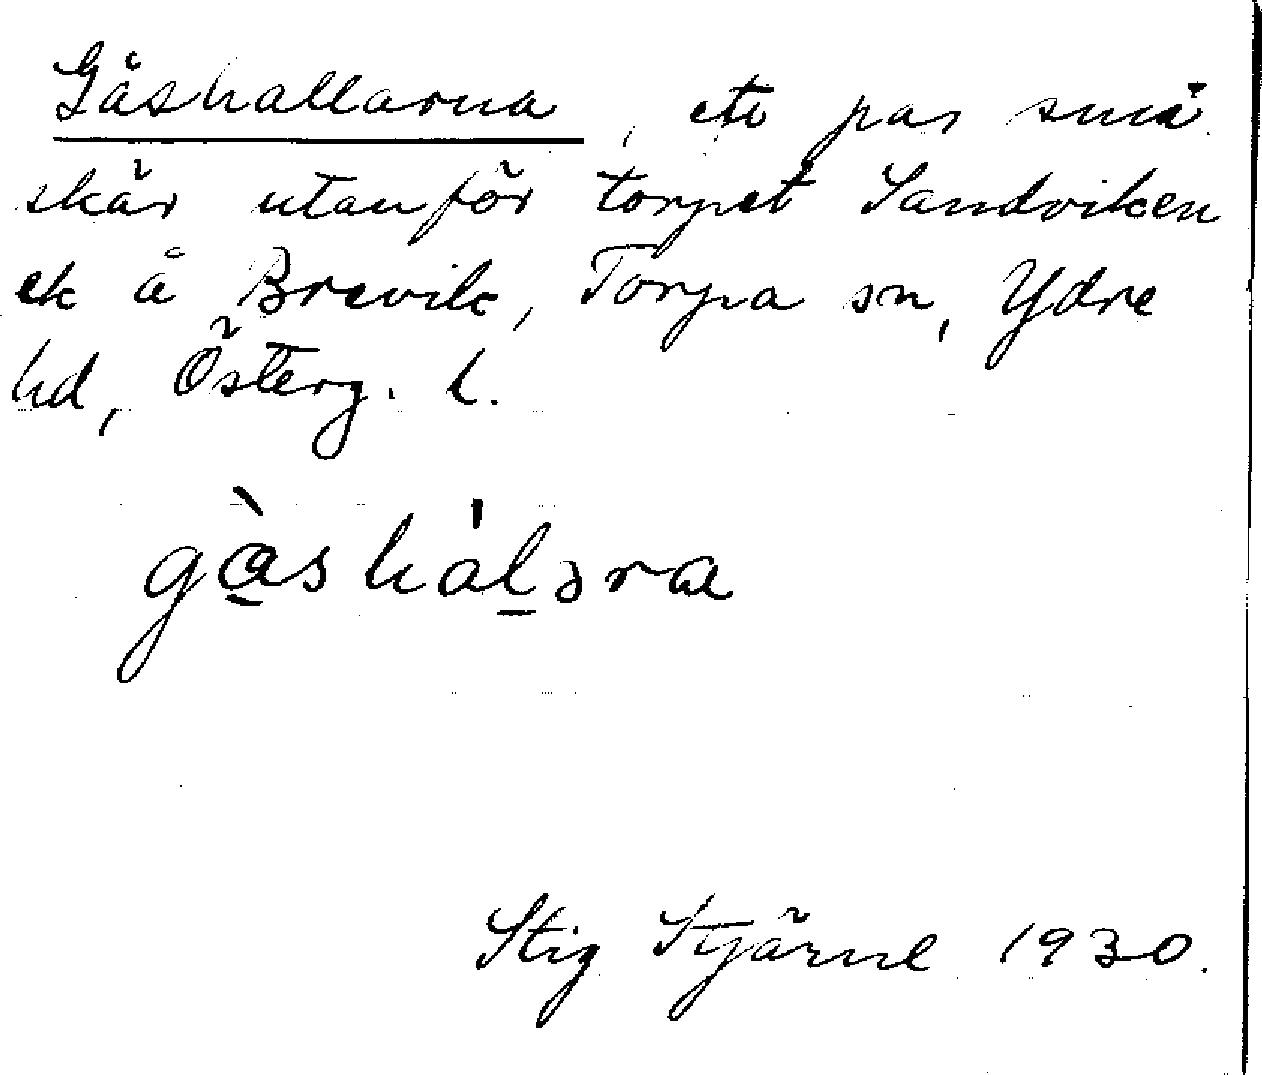 Gåshallarna, ett par små
skär utanför torpet Sandviken
ek å Brevik, Torpa sn, Ydre
hd, Österg. l.
gàshálǝra
Stig Stjärne 1930.